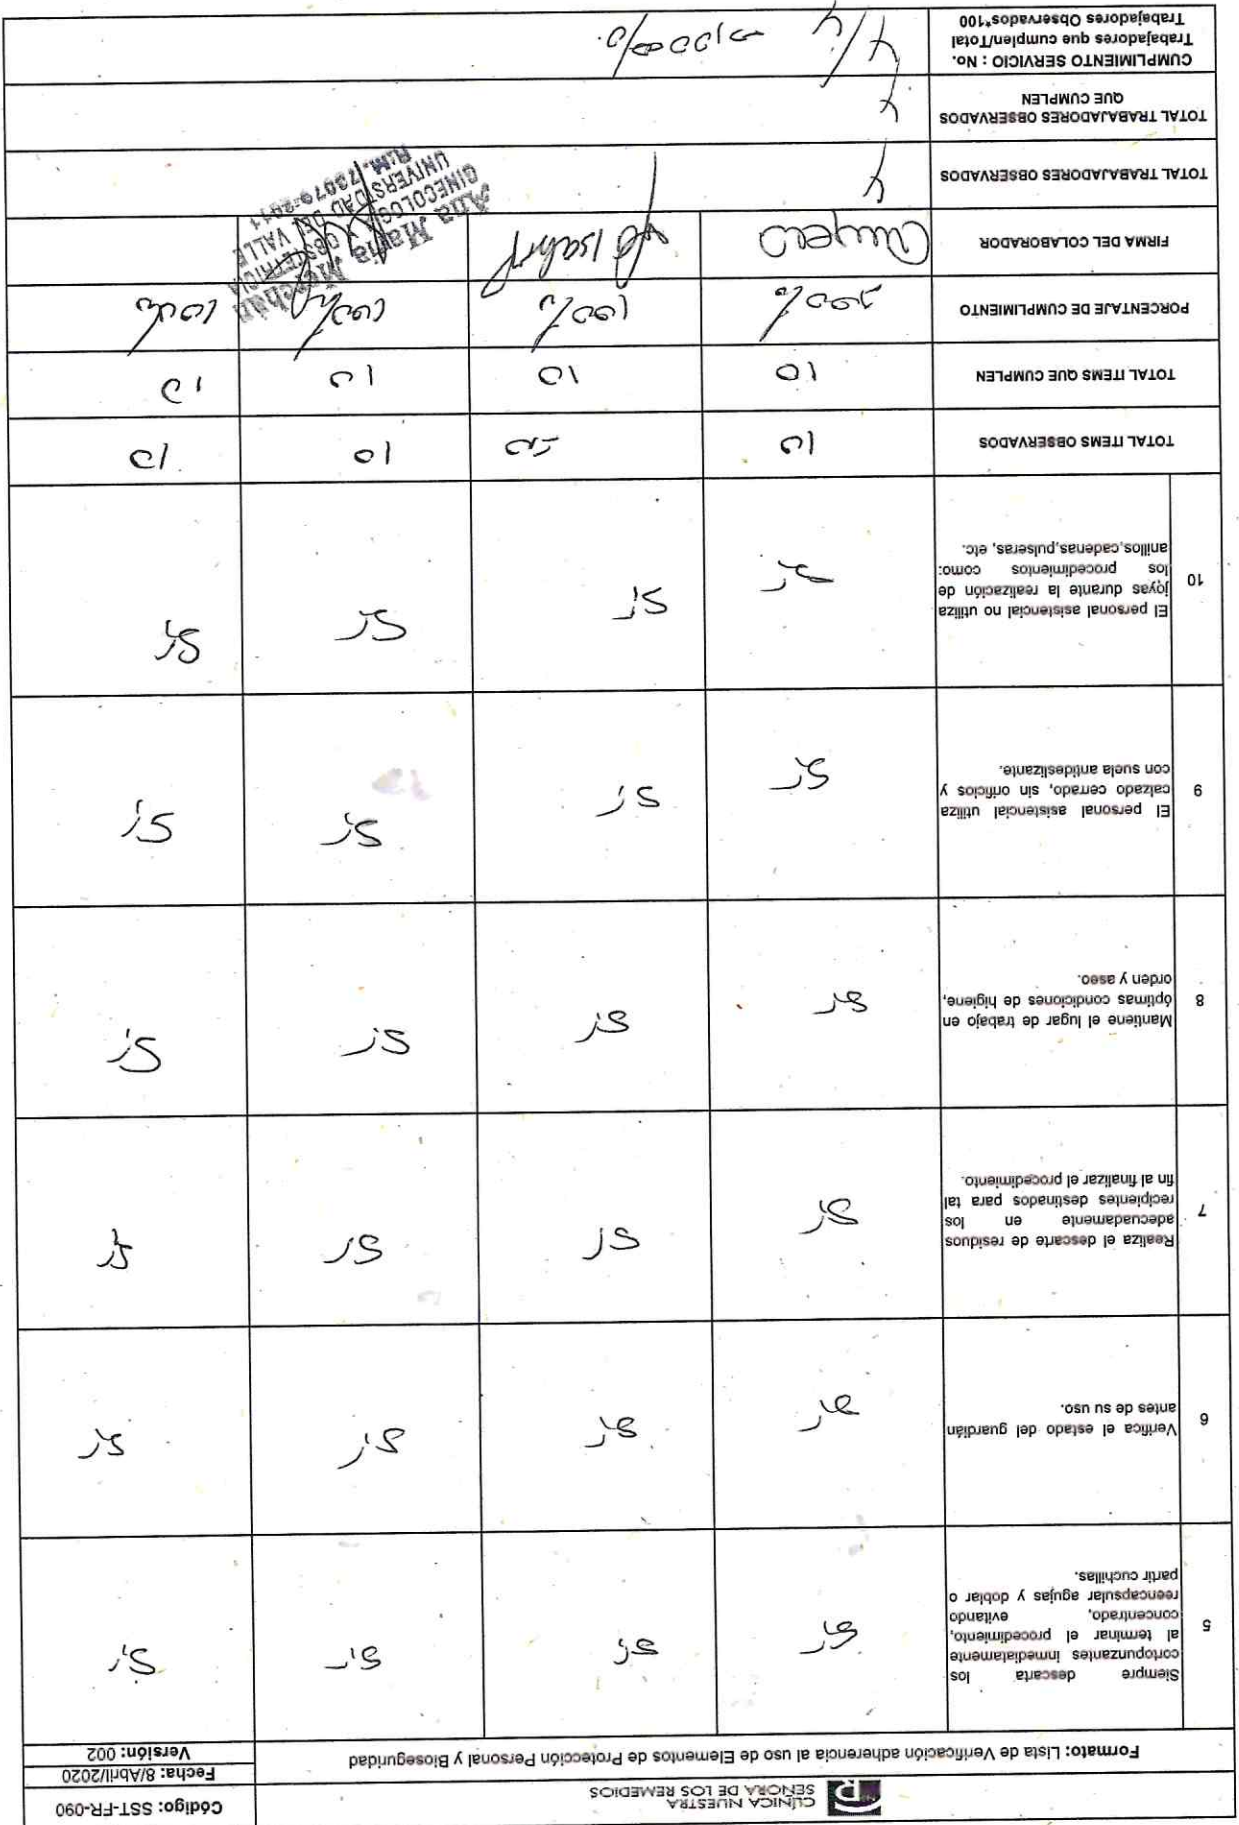 CLÍNICA NUESTRA
SEÑORA DE LOS REMEDIOS
Código: SST-FR-090
Formato: Lista de Verificación adherencia al uso de Elementos de Protección Personal y Bioseguridad
Fecha: 8/Abril/2020
Versión: 002
5
Siempre descarta los
cortopunzantes inmediatamente
al terminar el procedimiento,
concentrado, evitando
reencapsular agujas y doblar o
partir cuchillas.
si si si si
6
Verifica el estado del guardián
antes de su uso.
si si si si
7
Realiza el descarte de residuos
adecuadamente en los
recipientes destinados para tal
fin al finalizar el procedimiento.
si si si si
8
Mantiene el lugar de trabajo en
óptimas condiciones de higiene,
orden y aseo.
si si si si
9
El personal asistencial utiliza
calzado cerrado, sin orificios y
con suela antideslizante.
si si si si
10
El personal asistencial no utiliza
joyas durante la realización de
los procedimientos como:
anillos,cadenas,pulseras, etc.
si si si si
TOTAL ITEMS OBSERVADOS
10 10 10 10
TOTAL ITEMS QUE CUMPLEN
10 10 10 10
PORCENTAJE DE CUMPLIMIENTO
100% 100% 100% 100%
FIRMA DEL COLABORADOR
Ana María Merchán
GINECOLOGÍA Y OBSTETRICIA
UNIVERSIDAD DEL VALLE
R.M. 76070-2011
TOTAL TRABAJADORES OBSERVADOS
4
TOTAL TRABAJADORES OBSERVADOS
QUE CUMPLEN
4
CUMPLIMIENTO SERVICIO : No.
Trabajadores que cumplen/Total
Trabajadores Observados*100
4/4 100%.